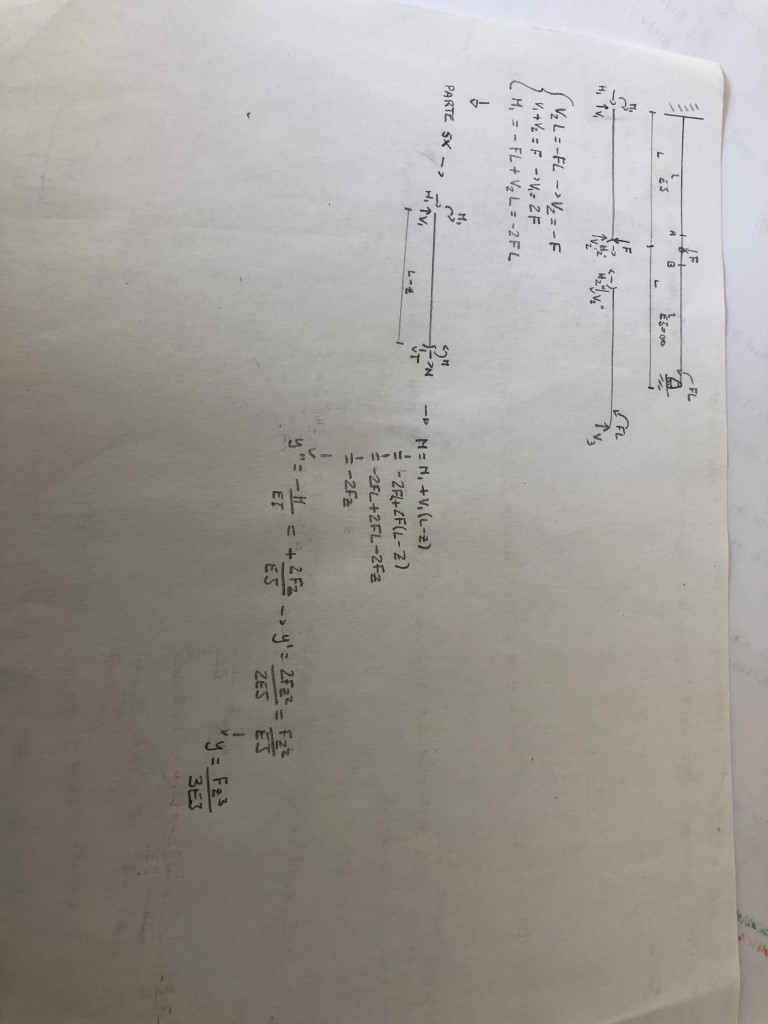 F FL
A B
L EJ L EJ=∞
L
M₁ F FL
H₁ V₁ H₂ V₂ H₂ V₂ V₃
V₂L = -FL → V₂ = -F
V₁ + V₂ = F → V₁ = 2F
M₁ = -FL + V₂L = -2FL
PARTE SX →
M₁ M
H₁ V₁ N
T
L-z
→ M = M₁ + V₁(L-z)
= -2FL + 2F(L-z)
= -2FL + 2FL - 2Fz
= -2Fz
y'' = -M/EJ = + 2Fz/EJ → y' = 2Fz²/2EJ = Fz²/EJ
y = Fz³/3EJ